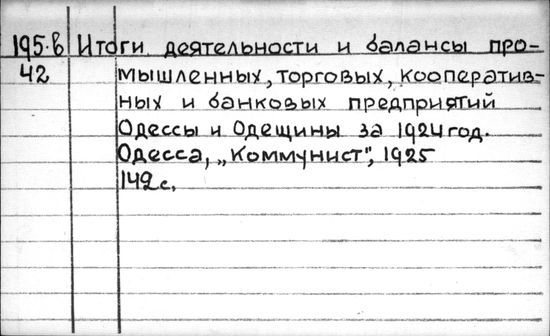 195.в Итоги деятельности и балансы про-
42 мышленных, торговых, кооператив-
ных и банковых предприятий
Одессы и Одещины за 1924 год.
Одесса, „Коммунист", 1925
142 с.